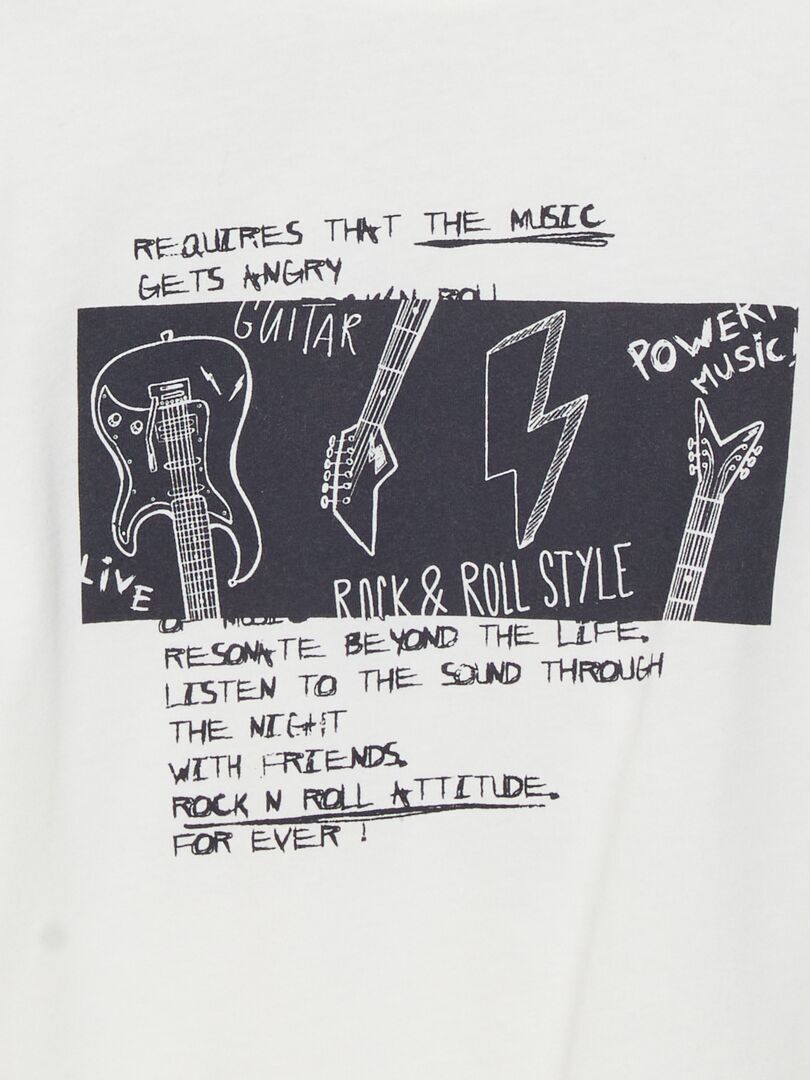 REQUIRES THAT THE MUSIC
GETS ANGRY
GUITAR
POWER
MUSIC
LIVE
ROCK & ROLL STYLE
RESONATE BEYOND THE LIFE.
LISTEN TO THE SOUND THROUGH
THE NIGHT
WITH FRIENDS.
ROCK N ROLL ATTITUDE.
FOR EVER !